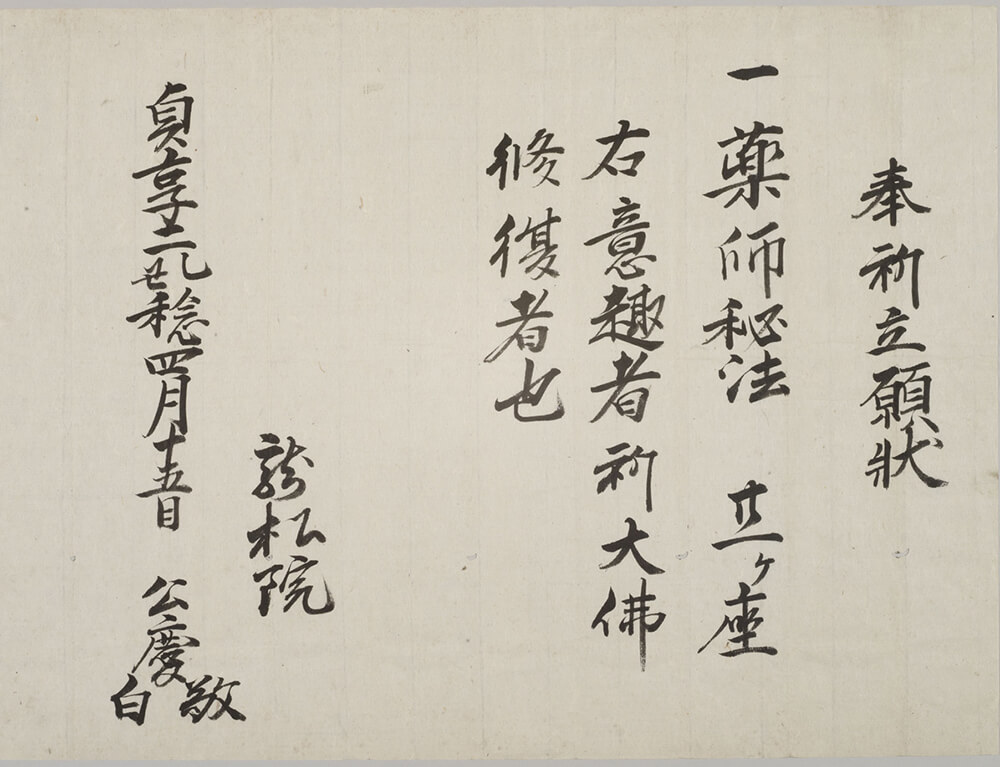 奉祈立願状
一薬師秘法 廿一ヶ座
右意趣者祈大佛
修復者也
龍松院
貞享二乙丑稔四月十五日 公慶敬白